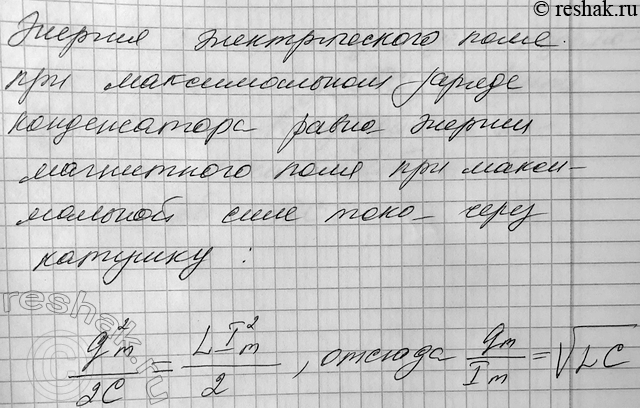 © reshak.ru
Энергия электрического поля
при максимальном заряде
конденсатора равна энергии
магнитного поля при макси-
мальной силе тока через
катушку :
q²m/2C = LI²m/2 , отсюда qm/Im = √LC
© reshak.ru